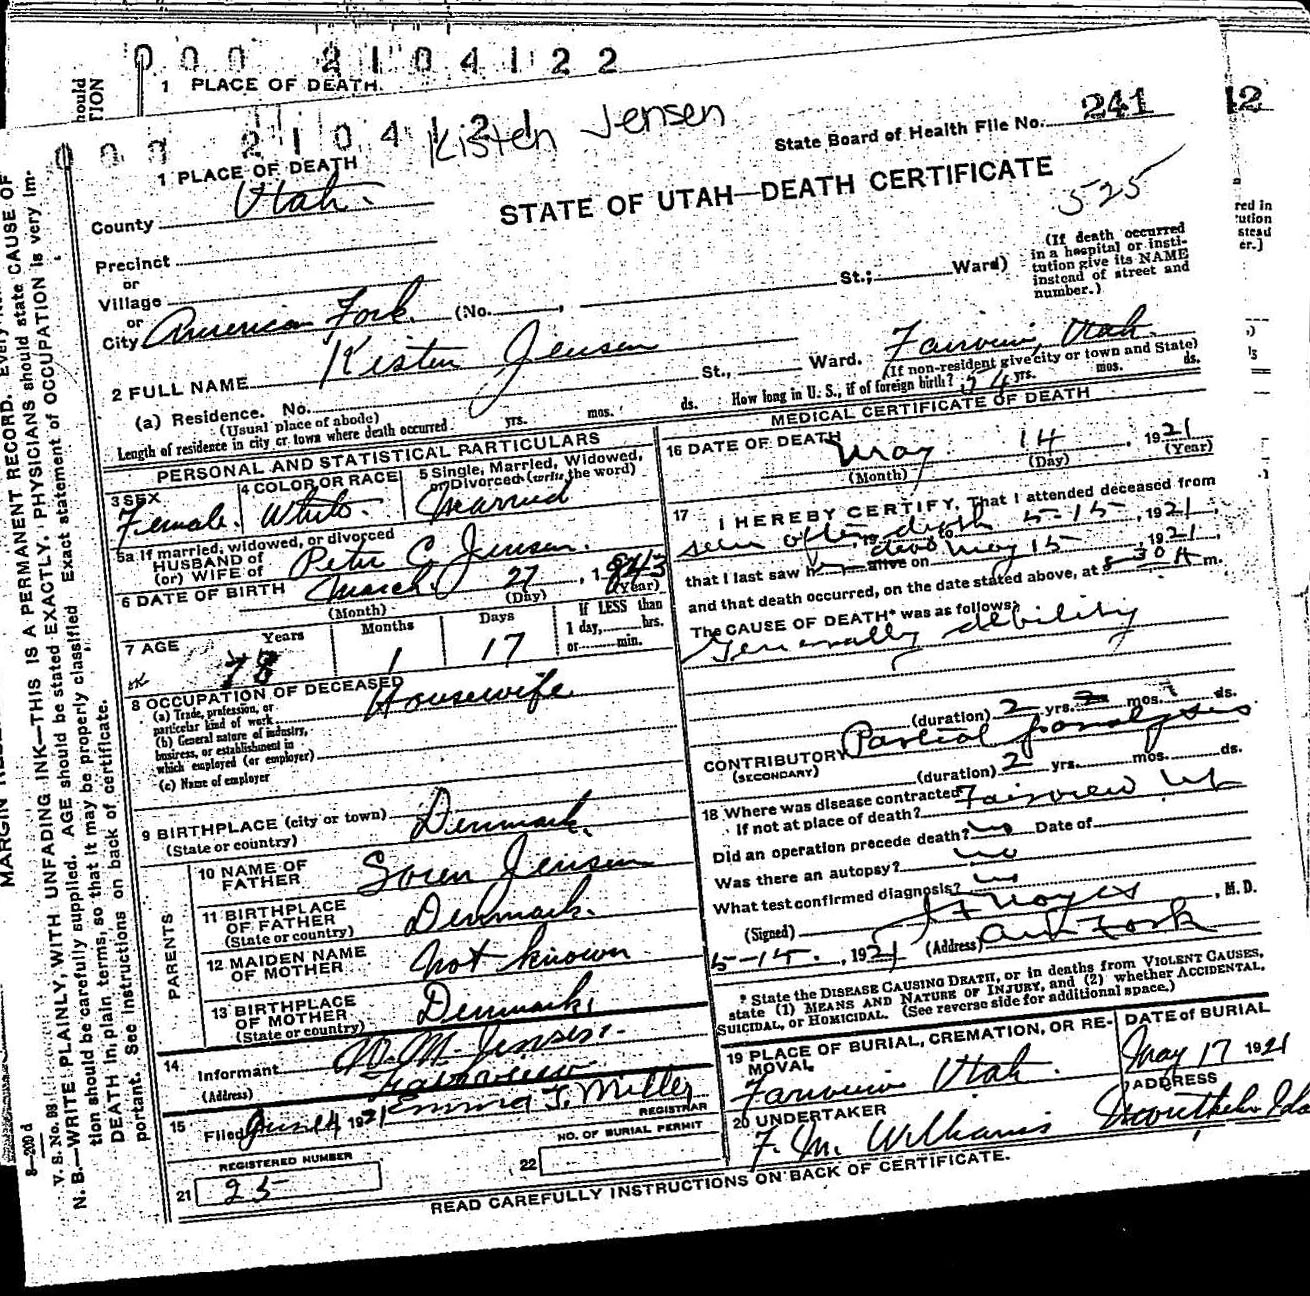 0 0 0 2 1 0 4 1 2 2
1 PLACE OF DEATH.
hould
TION
12
red in
ution
stead
er.)
0 0 2 1 0 4 1 2 1
Kisten Jensen
State Board of Health File No. 241
1 PLACE OF DEATH
STATE OF UTAH—DEATH CERTIFICATE
525
County Utah.
Precinct
or
Village
or
City American Fork. (No. , St.; Ward)
(If death occurred
in a hospital or insti-
tution give its NAME
instead of street and
number.)
2 FULL NAME Kisten Jensen
(a) Residence. No. St., Ward. Fairview, Utah.
(Usual place of abode) (If non-resident give city or town and State)
Length of residence in city or town where death occurred yrs. mos. ds. How long in U. S., if of foreign birth? yrs. mos. ds.
PERSONAL AND STATISTICAL PARTICULARS
3 SEX
Female.
4 COLOR OR RACE
White.
5 Single, Married, Widowed,
or Divorced (write the word)
Married
5a If married, widowed, or divorced
HUSBAND of
(or) WIFE of Peter C. Jensen.
6 DATE OF BIRTH March 27, 1843
(Month) (Day) (Year)
7 AGE Years Months Days If LESS than
1 day, hrs.
or min.
78 1 17
8 OCCUPATION OF DECEASED
(a) Trade, profession, or
particular kind of work Housewife.
(b) General nature of industry,
business, or establishment in
which employed (or employer)
(c) Name of employer
9 BIRTHPLACE (city or town)
(State or country) Denmark.
PARENTS
10 NAME OF
FATHER Soren Jensen
11 BIRTHPLACE
OF FATHER
(State or country) Denmark.
12 MAIDEN NAME
OF MOTHER not known
13 BIRTHPLACE
OF MOTHER
(State or country) Denmark.
14 Informant W. M. Jensen.
(Address) Fairview
15 Filed June 14 1921 Emma J. Miller
REGISTRAR
REGISTERED NUMBER
21 25
NO. OF BURIAL PERMIT
22
MEDICAL CERTIFICATE OF DEATH
16 DATE OF DEATH May 14, 1921
(Month) (Day) (Year)
17 I HEREBY CERTIFY, That I attended deceased from
seen after death 5-15-, 1921,
that I last saw h alive on dead May 15, 1921,
and that death occurred, on the date stated above, at 8-30 A m.
The CAUSE OF DEATH* was as follows:
Generally debility
(duration) 2 yrs. mos. ds.
CONTRIBUTORY Partial paralysis
(SECONDARY)
(duration) 2 yrs. mos. ds.
18 Where was disease contracted Fairview Ut
If not at place of death?
Did an operation precede death? no Date of
Was there an autopsy? no
What test confirmed diagnosis? no
(Signed) Noyes, M. D.
, 1921 (Address) Am Fork
* State the DISEASE CAUSING DEATH, or in deaths from VIOLENT CAUSES,
state (1) MEANS AND NATURE OF INJURY, and (2) whether ACCIDENTAL,
SUICIDAL, or HOMICIDAL. (See reverse side for additional space.)
19 PLACE OF BURIAL, CREMATION, OR RE-
MOVAL
Fairview Utah.
DATE of BURIAL
May 17 1921
20 UNDERTAKER
F. M. Williams
ADDRESS
READ CAREFULLY INSTRUCTIONS ON BACK OF CERTIFICATE.
8—200 d
V. S. No. 98
N. B.—WRITE PLAINLY, WITH UNFADING INK—THIS IS A PERMANENT RECORD. Every
tion should be carefully supplied. AGE should be stated EXACTLY. PHYSICIANS should state CAUSE OF
DEATH in plain terms, so that it may be properly classified. Exact statement of OCCUPATION is very im-
portant. See instructions on back of certificate.